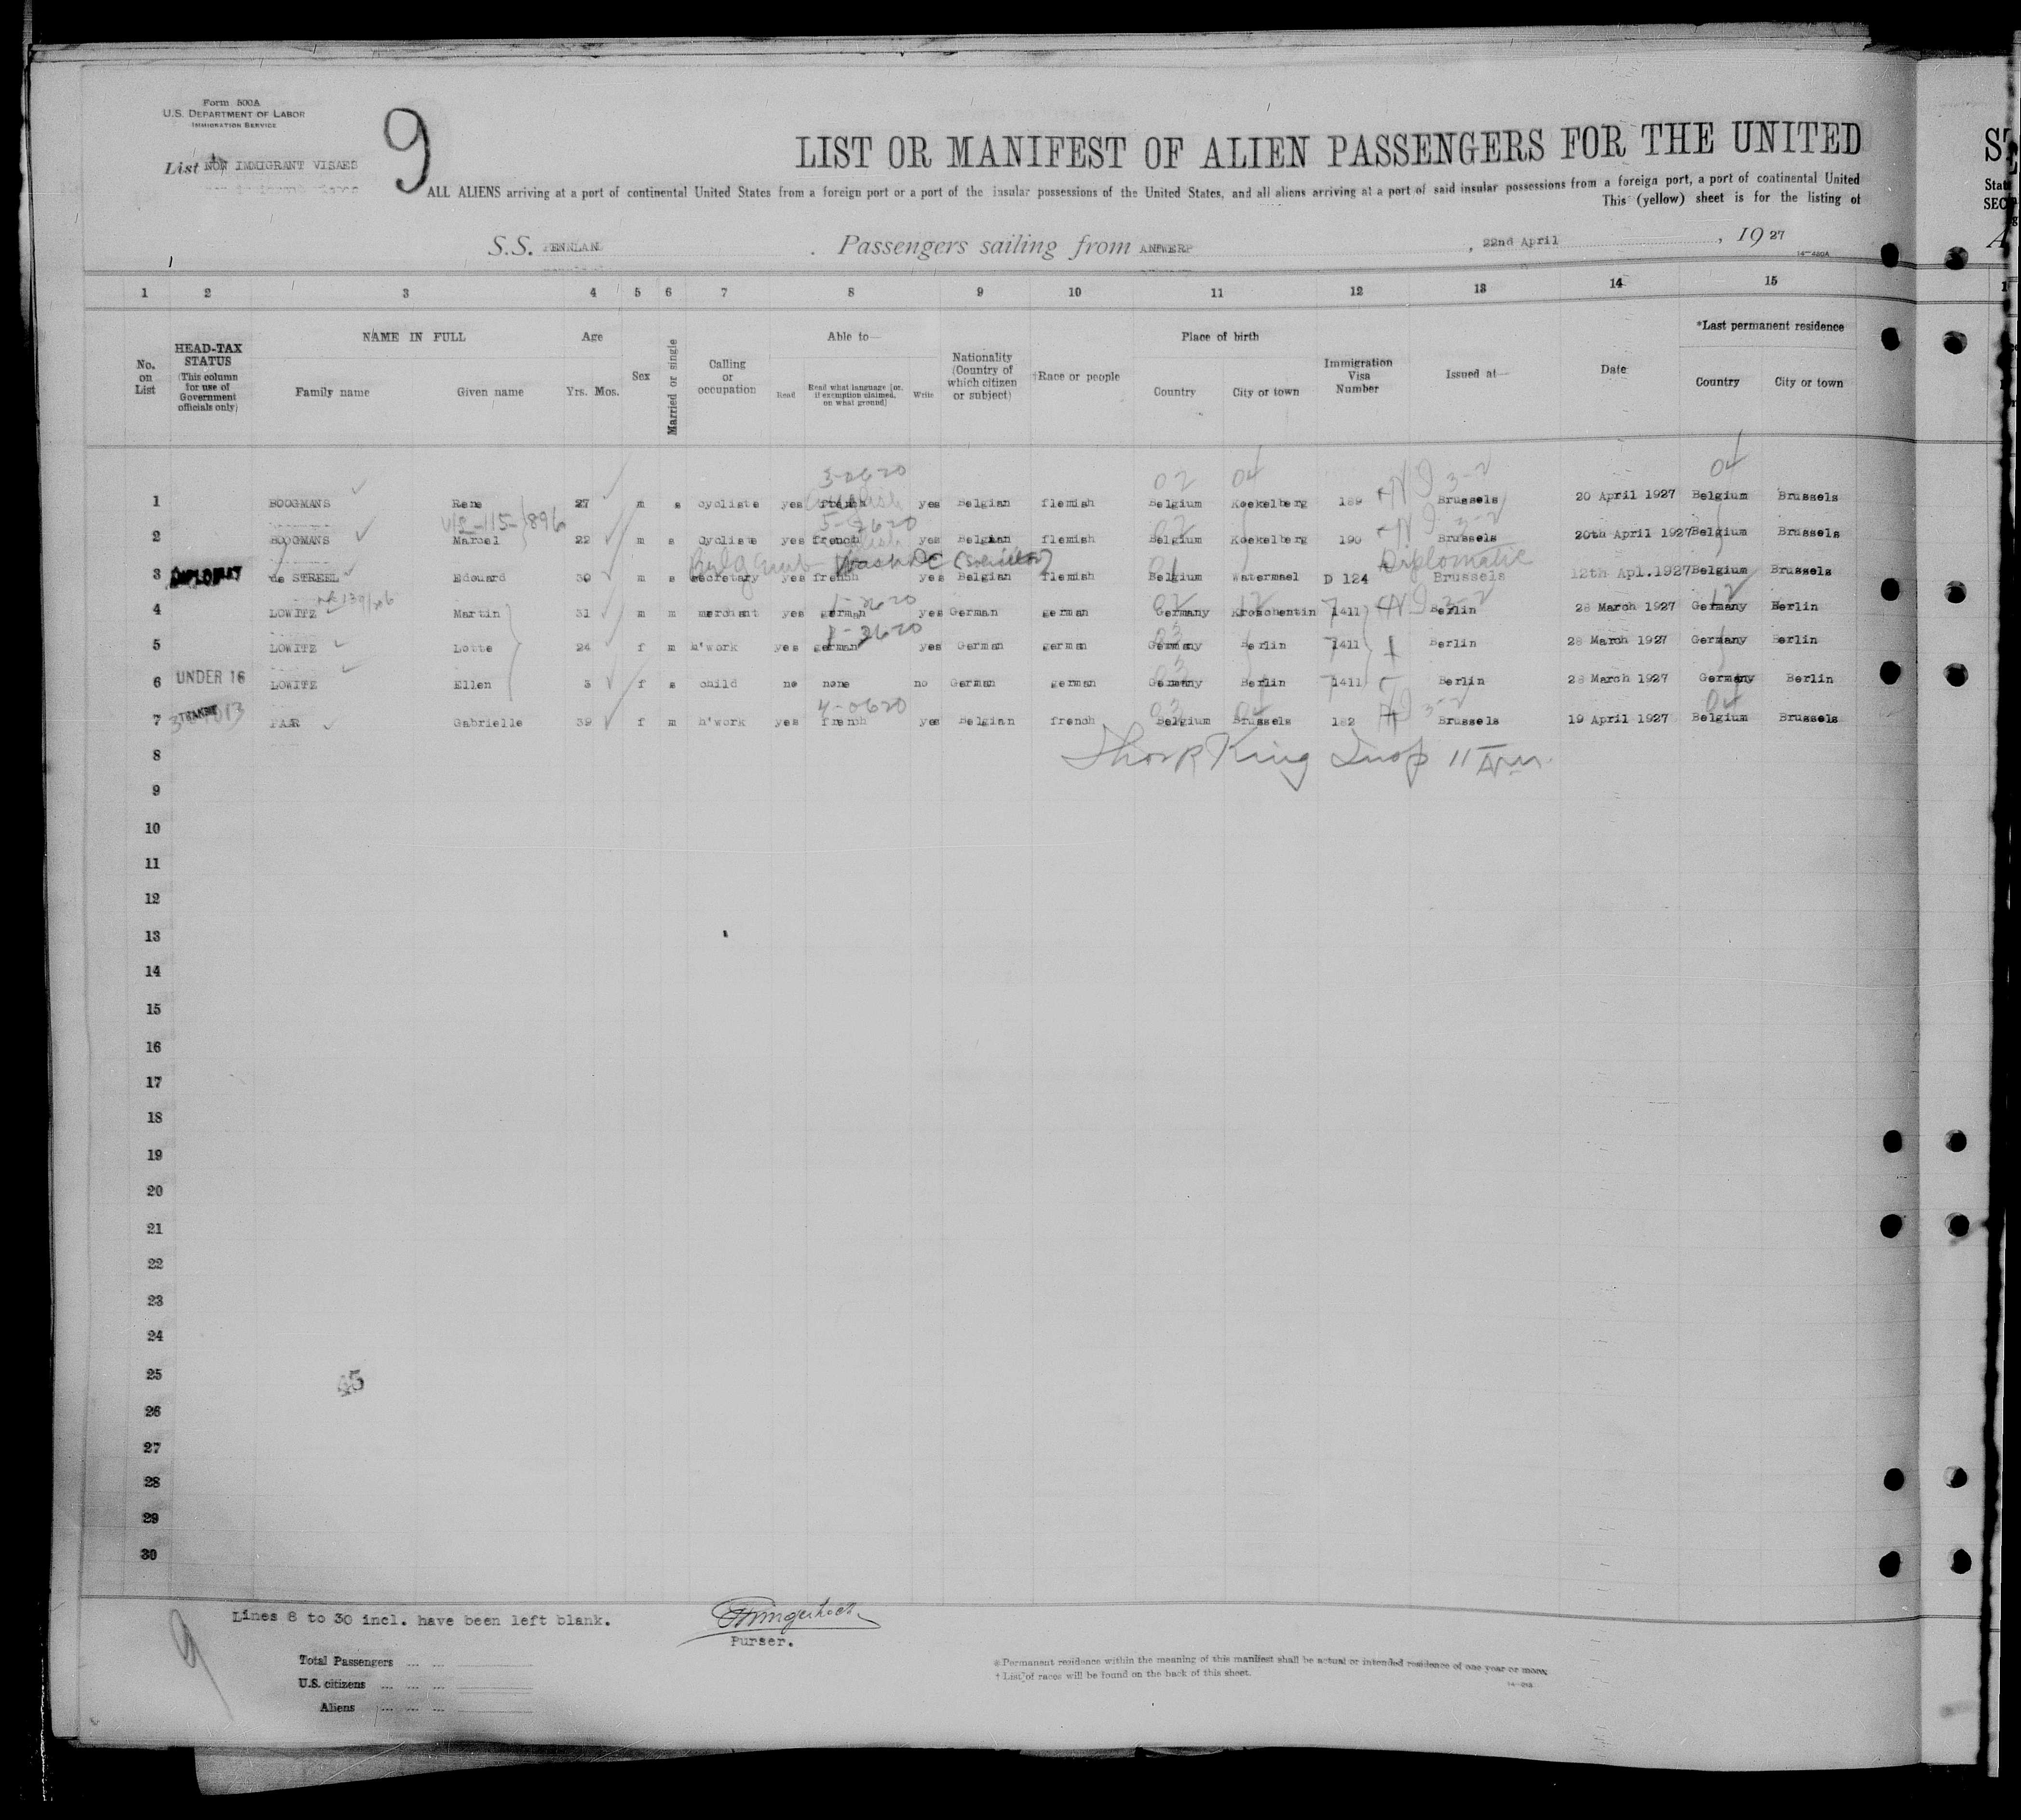 Form 500A
U.S. DEPARTMENT OF LABOR
IMMIGRATION SERVICE
9
List NON IMMIGRANT VISAES
LIST OR MANIFEST OF ALIEN PASSENGERS FOR THE UNITED
ALL ALIENS arriving at a port of continental United States from a foreign port or a port of the insular possessions of the United States, and all aliens arriving at a port of said insular possessions from a foreign port, a port of continental United
This (yellow) sheet is for the listing of
S.S. PENNLAND . Passengers sailing from ANTWERP , 22nd April , 19 27
1 2 3 4 5 6 7 8 9 10 11 12 13 14 15
No. on List
HEAD-TAX STATUS (This column for use of Government officials only)
NAME IN FULL
Family name Given name
Age
Yrs. Mos.
Sex
Married or single
Calling or occupation
Able to—
Read
Read what language [or, if exemption claimed, on what ground]
Write
Nationality (Country of which citizen or subject)
†Race or people
Place of birth
Country City or town
Immigration Visa Number
Issued at—
Date
*Last permanent residence
Country City or town
3-2620 02 04 NI 3-2 04
1 BOOGMANS Rene 27 m s cycliste yes french yes Belgian flemish Belgium Koekelberg 189 Brussels 20 April 1927 Belgium Brussels
V/S-115-896 5-2620 02 NI 3-2
2 BOOGMANS Marcel 22 m s Cycliste yes french yes Belgian flemish Belgium Koekelberg 190 Brussels 20th April 1927 Belgium Brussels
Wash DC Diplomatic
3 DIPLOMAT de STREEL Edouard 30 m s secretary yes french yes Belgian flemish Belgium Watermael D 124 Brussels 12th Apl.1927 Belgium Brussels
1-2620 02 12 NI 3-2 12
4 LOWITZ Martin 31 m m merchant yes german yes German german Germany Kroschentin 1411 Berlin 28 March 1927 Germany Berlin
1-2620 03
5 LOWITZ Lotte 24 f m h'work yes german yes German german Germany Berlin 1411 Berlin 28 March 1927 Germany Berlin
03
6 UNDER 16 LOWITZ Ellen 3 f s child no none no German german Germany Berlin 1411 Berlin 28 March 1927 Germany Berlin
4-0620 03 04 3-2 04
7 TRANSIT Gabrielle 39 f m h'work yes french yes Belgian french Belgium Brussels 182 Brussels 19 April 1927 Belgium Brussels
King Insp
8
9
10
11
12
13
14
15
16
17
18
19
20
21
22
23
24
25
45
26
27
28
29
30
Lines 8 to 30 incl. have been left blank.
Purser.
9
Total Passengers
U.S. citizens
Aliens
*Permanent residence within the meaning of this manifest shall be actual or intended residence of one year or more.
† List of races will be found on the back of this sheet.